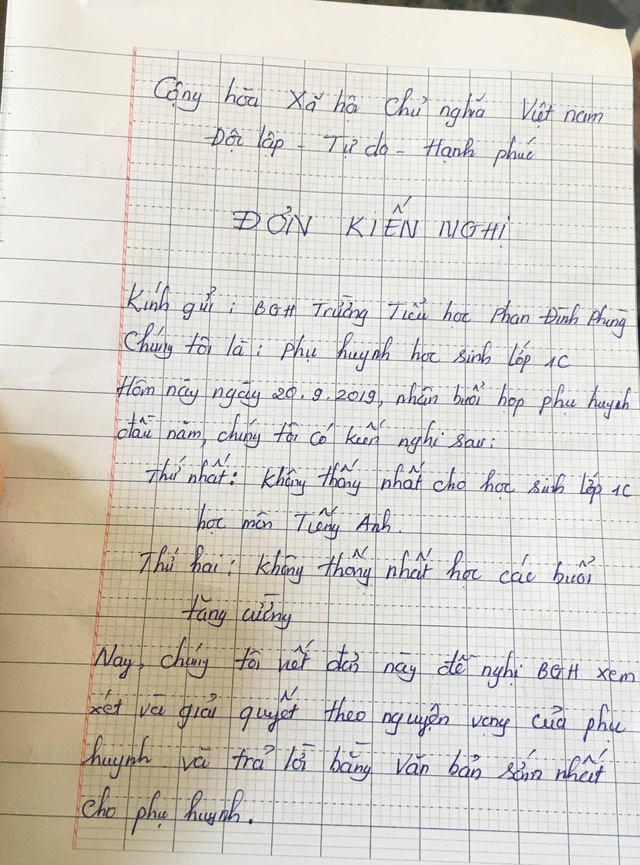 Cộng hòa Xã hội Chủ nghĩa Việt nam
Độc lập - Tự do - Hạnh phúc
ĐƠN KIẾN NGHỊ
Kính gửi : BGH Trường Tiểu học Phan Đình Phùng
Chúng tôi là : phụ huynh học sinh lớp 1C
Hôm nay ngày 20.9.2019, nhân buổi họp phụ huynh
đầu năm, chúng tôi có kiến nghị sau :
Thứ nhất : Không thống nhất cho học sinh lớp 1C
học môn Tiếng Anh.
Thứ hai : Không thống nhất học các buổi
tăng cường
Nay, chúng tôi viết đơn này đề nghị BGH xem
xét và giải quyết theo nguyện vọng của phụ
huynh và trả lời bằng văn bản sớm nhất
cho phụ huynh.